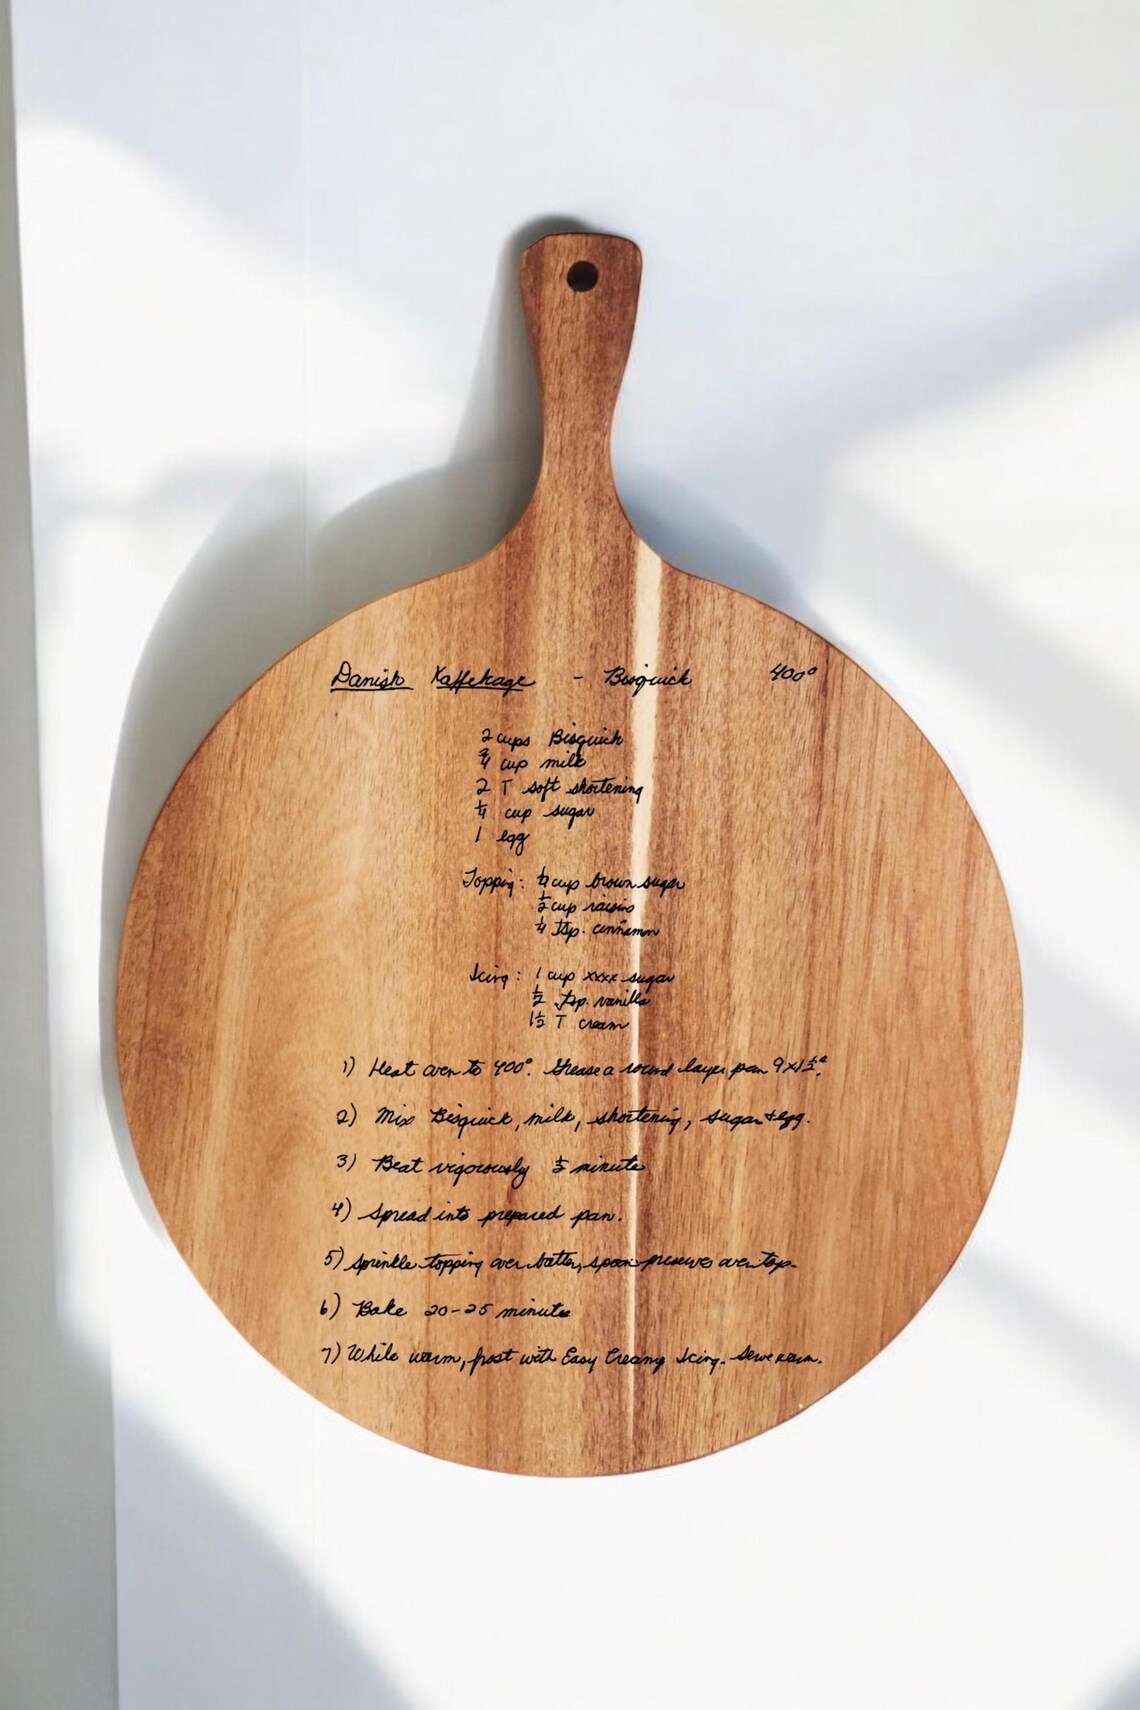 Danish Kaffekage - Bisquick 400°
2 cups Bisquick
3/4 cup milk
2 T soft shortening
1/4 cup sugar
1 egg
Topping: 1/4 cup brown sugar
1/2 cup raisins
1/4 tsp. cinnamon
Icing: 1 cup xxxx sugar
1/2 tsp. vanilla
1 1/2 T cream
1) Heat oven to 400°. Grease a round layer pan 9x1 1/2".
2) Mix Bisquick, milk, shortening, sugar + egg.
3) Beat vigorously 1/2 minute
4) Spread into prepared pan.
5) Sprinkle topping over batter, spoon preserves over top.
6) Bake 20-25 minutes
7) While warm, frost with Easy Creamy Icing. Serve warm.